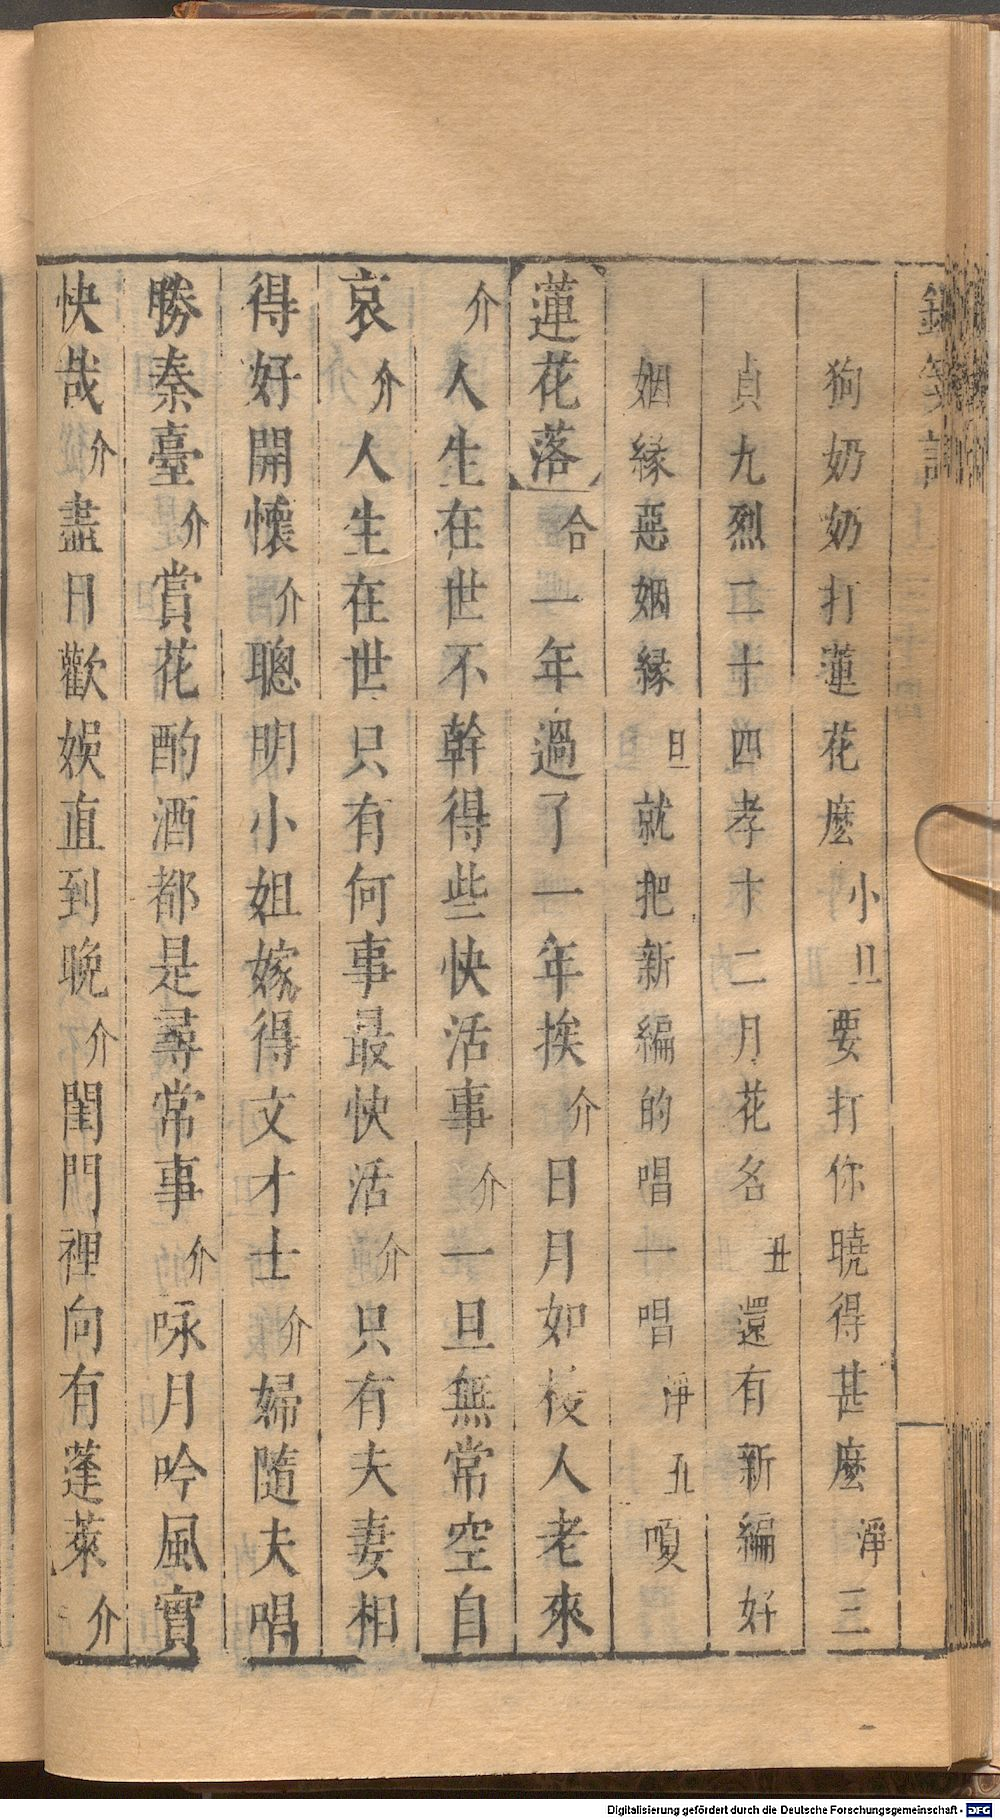 狗奶奶打蓮花麽小旦要打你曉得甚麽淨三
貞九烈二十四孝十二月花名丑還有新編好
姻緣惡姻緣旦就把新編的唱一唱淨丑嗄
蓮花落合一年過了一年挨介日月如梭人老來
介人生在世不幹得些快活事介一旦無常空自
哀介人生在世只有何事最快活介只有夫妻相
得好開懷介聰明小姐嫁得文才士介婦隨夫唱
勝秦臺介賞花酌酒都是尋常事介咏月吟風實
快哉介盡日歡娛直到晚介閨門裡向有蓬萊介
Digitalisierung gefördert durch die Deutsche Forschungsgemeinschaft - DFG